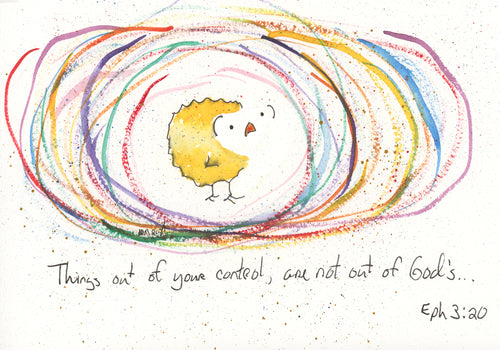 Things out of your control, are not out of God's...
Eph 3:20